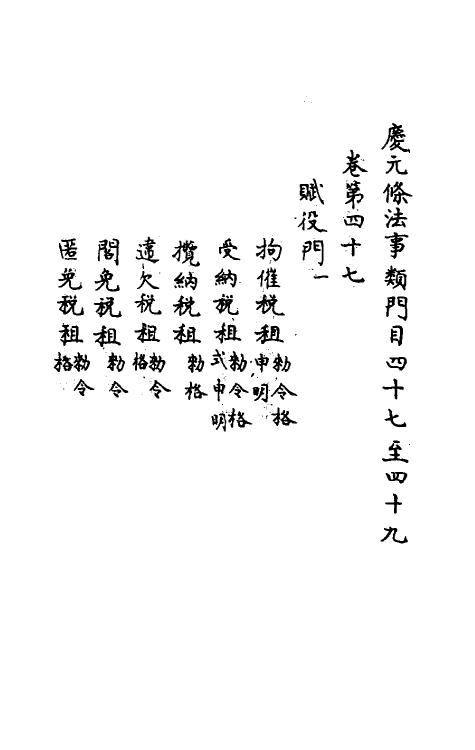 慶元條法事類門目四十七至四十九
卷第四十七
賦役門一
拘催税租勅令格申明
受納税租勅令格式申明
攬納税租勅格
違欠税租勅令格
閣免税租勅令
匿免税租勅令格